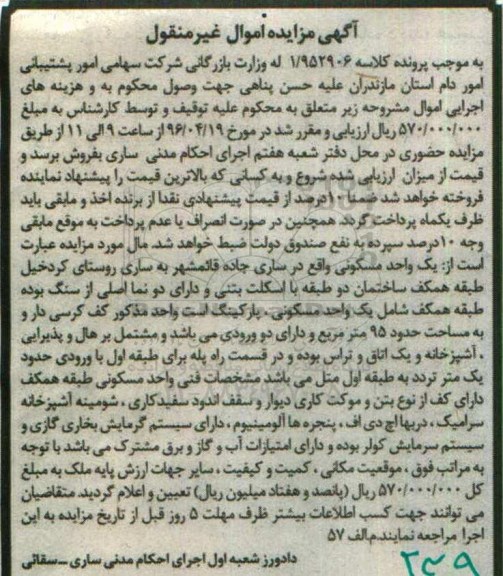 آگهی مزایده اموال غیر منقول
به موجب پرونده کلاسه ۱/۹۵۲۹۰۶ له وزارت بازرگانی شرکت سهامی امور پشتیبانی
امور دام استان مازندران علیه حسن پناهی جهت وصول محکوم به و هزینه های
اجرایی اموال مشروحه زیر متعلق به محکوم علیه توقیف و توسط کارشناس به مبلغ
۵۷۰/۰۰۰/۰۰۰ ریال ارزیابی و مقرر شد در مورخ ۹۶/۰۴/۱۹ از ساعت ۹ الی ۱۱ از طریق
مزایده حضوری در محل دفتر شعبه هفتم اجرای احکام مدنی ساری بفروش برسد و
قیمت از میزان ارزیابی شده شروع و به کسانی که بالاترین قیمت را پیشنهاد نماینده
فروخته خواهد شد ضمنا ۱۰درصد از قیمت پیشنهادی نقدا از برنده اخذ و مابقی باید
ظرف یکماه پرداخت گردد همچنین در صورت انصراف یا عدم پرداخت به موقع مابقی
وجه ۱۰درصد سپرده به نفع صندوق دولت ضبط خواهد شد. مال مورد مزایده عبارت
است از: یک واحد مسکونی واقع در ساری جاده قائمشهر به ساری روستای کردخیل
طبقه همکف ساختمان دو طبقه با اسکلت بتنی و دارای دو نما اصلی از سنگ بوده
طبقه همکف شامل یک واحد مسکونی ، پارکینگ است واحد مذکور کف کرسی دار و
به مساحت حدود ۹۵ متر مربع و دارای دو ورودی می باشد و مشتمل بر هال و پذیرایی
، آشپزخانه و یک اتاق و تراس بوده و در قسمت راه پله برای طبقه اول با ورودی حدود
یک متر تردد به طبقه اول متل می باشد مشخصات فنی واحد مسکونی طبقه همکف
دارای کف از نوع بتن و موکت کاری دیوار و سقف اندود سفیدکاری ، شومینه آشپزخانه
سرامیک ، دربها اچ دی اف ، پنجره ها آلومینیوم ، دارای سیستم گرمایش بخاری گازی و
سیستم سرمایش کولر بوده و دارای امتیازات آب و گاز و برق مشترک می باشد با توجه
به مراتب فوق ، موقعیت مکانی ، کمیت و کیفیت ، سایر جهات ارزش پایه ملک به مبلغ
کل ۵۷۰/۰۰۰/۰۰۰ ریال (پانصد و هفتاد میلیون ریال) تعیین و اعلام گردید. متقاضیان
می توانند جهت کسب اطلاعات بیشتر ظرف مهلت ۵ روز قبل از تاریخ مزایده به این
اجرا مراجعه نمایند.م.الف ۵۷
دادورز شعبه اول اجرای احکام مدنی ساری ــ سقائی
۲۳۹